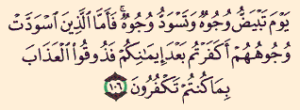 يَوْمَ تَبْيَضُّ وُجُوهٌ وَتَسْوَدُّ وُجُوهٌ ۚ فَأَمَّا ٱلَّذِينَ ٱسْوَدَّتْ
وُجُوهُهُمْ أَكَفَرْتُم بَعْدَ إِيمَٰنِكُمْ فَذُوقُوا۟ ٱلْعَذَابَ
بِمَا كُنتُمْ تَكْفُرُونَ ١٠٦